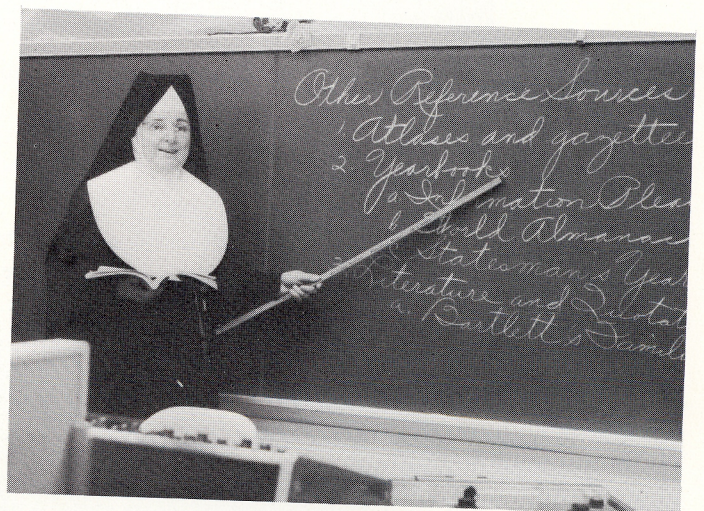 Other Reference Sources
1. Atlases and gazettee
2. Yearbooks
a. Information Pleas
b. World Almanac
c. Statesman's Year
3. Literature and Quotat
a. Bartlett's Famili